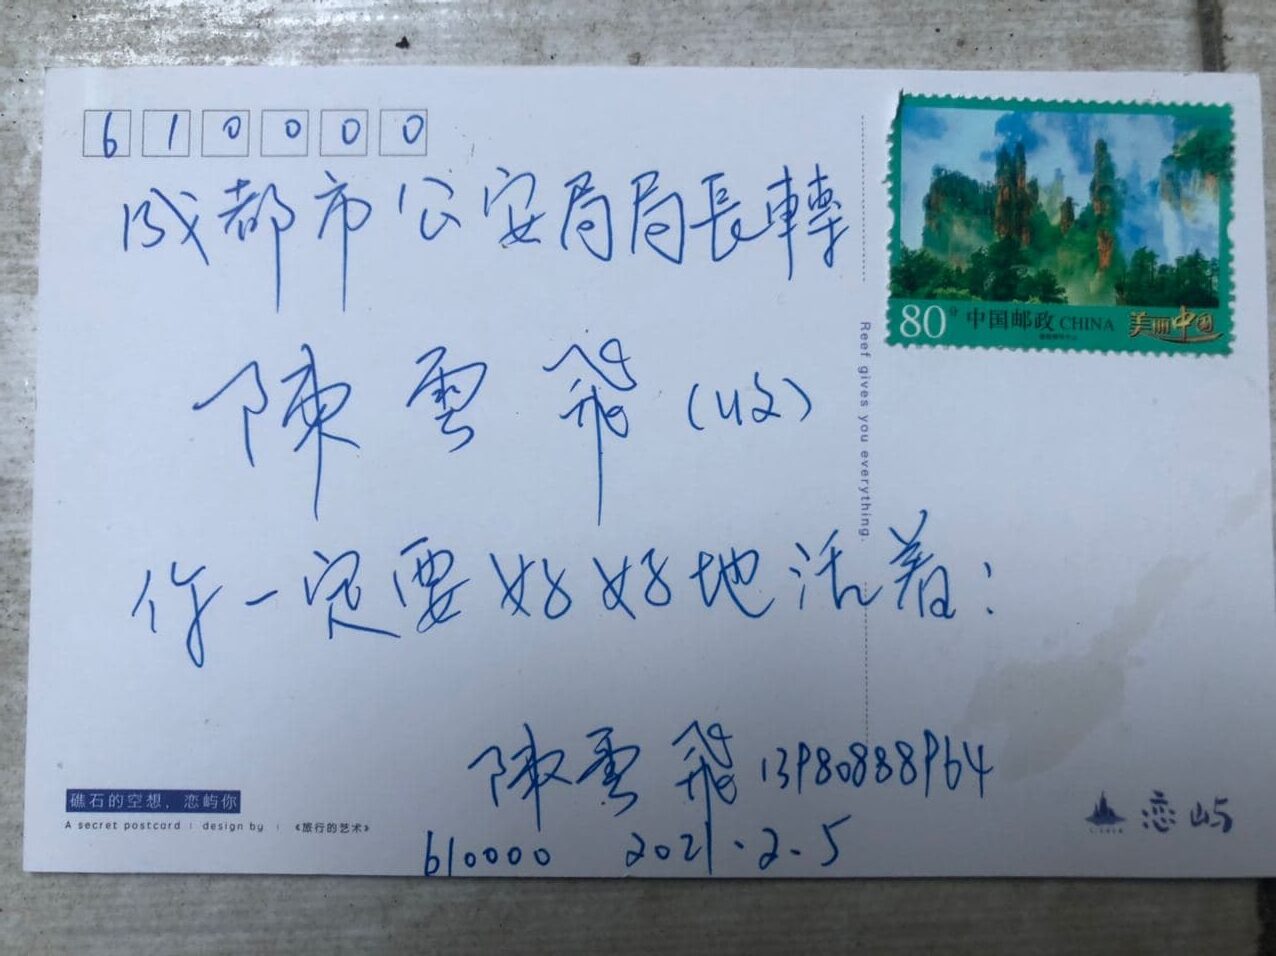 610000
成都市公安局局長轉
陳雲飛(收)
你一定要好好地活着:
陳雲飛 13980888964
610000 2021.2.5
80分 中国邮政 CHINA 美丽中国
Reef gives you everything.
礁石的空想,恋屿你
A secret postcard | design by | 《旅行的艺术》
恋屿